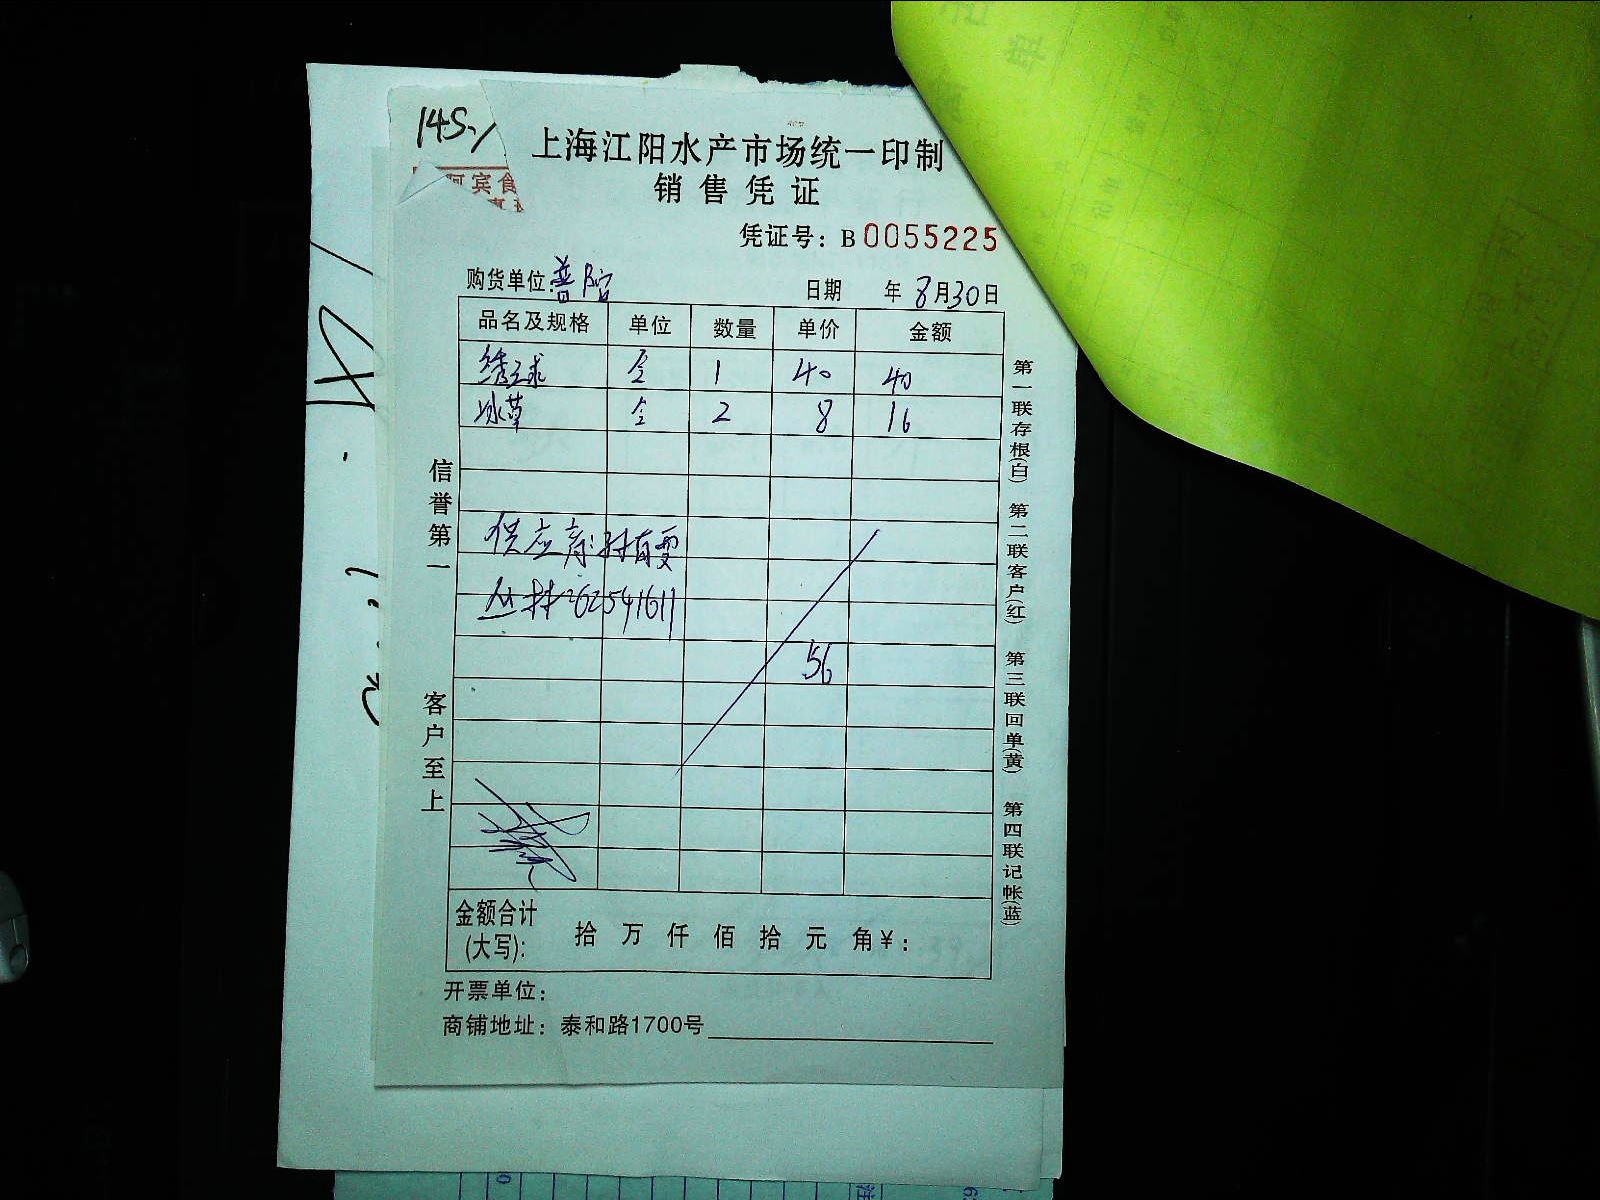 上海江阳水产市场统一印制
阿宾食
销售凭证
凭证号：B 0055225
购货单位：普陀 日期 年 8月30日
品名及规格 单位 数量 单价 金额
绣球 1 40 40
冰草 2 8 16
供应商：
丛林：62541611
56
金额合计(大写)： 拾 万 仟 佰 拾 元 角 ¥：
开票单位：
商铺地址：泰和路1700号
信誉第一
客户至上
第一联存根(白) 第二联客户(红) 第三联回单(黄) 第四联记帐(蓝)